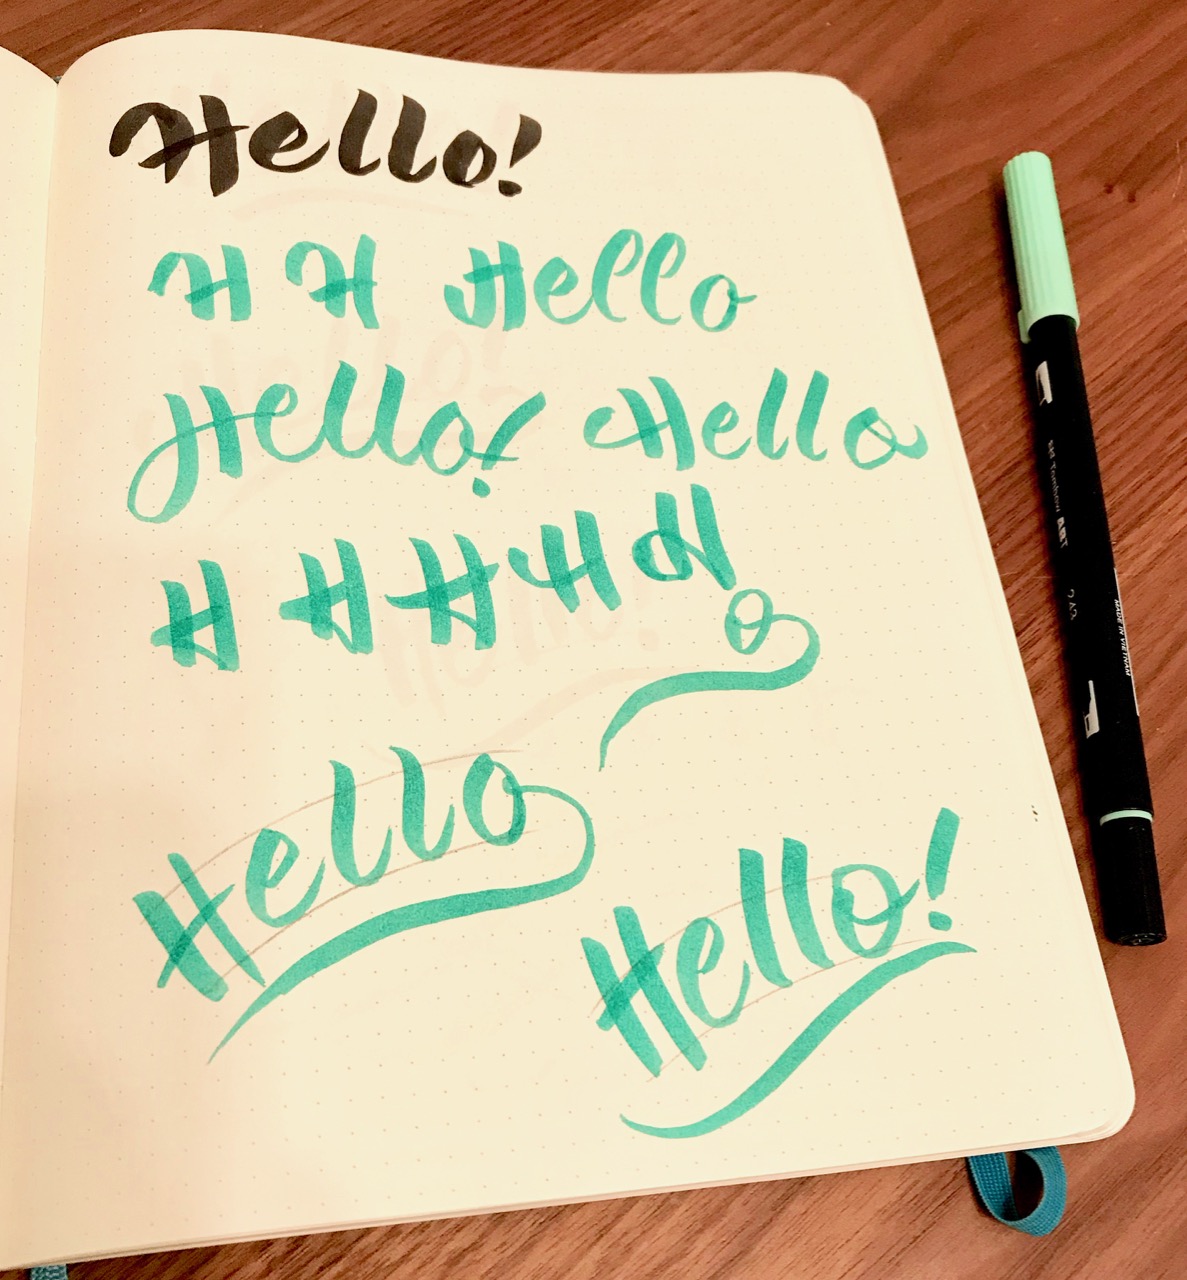 Hello!
H H Hello
Hello! Hello
H H H H H
o
Hello
Hello!
Tombow ABT
243
MADE IN VIETNAM